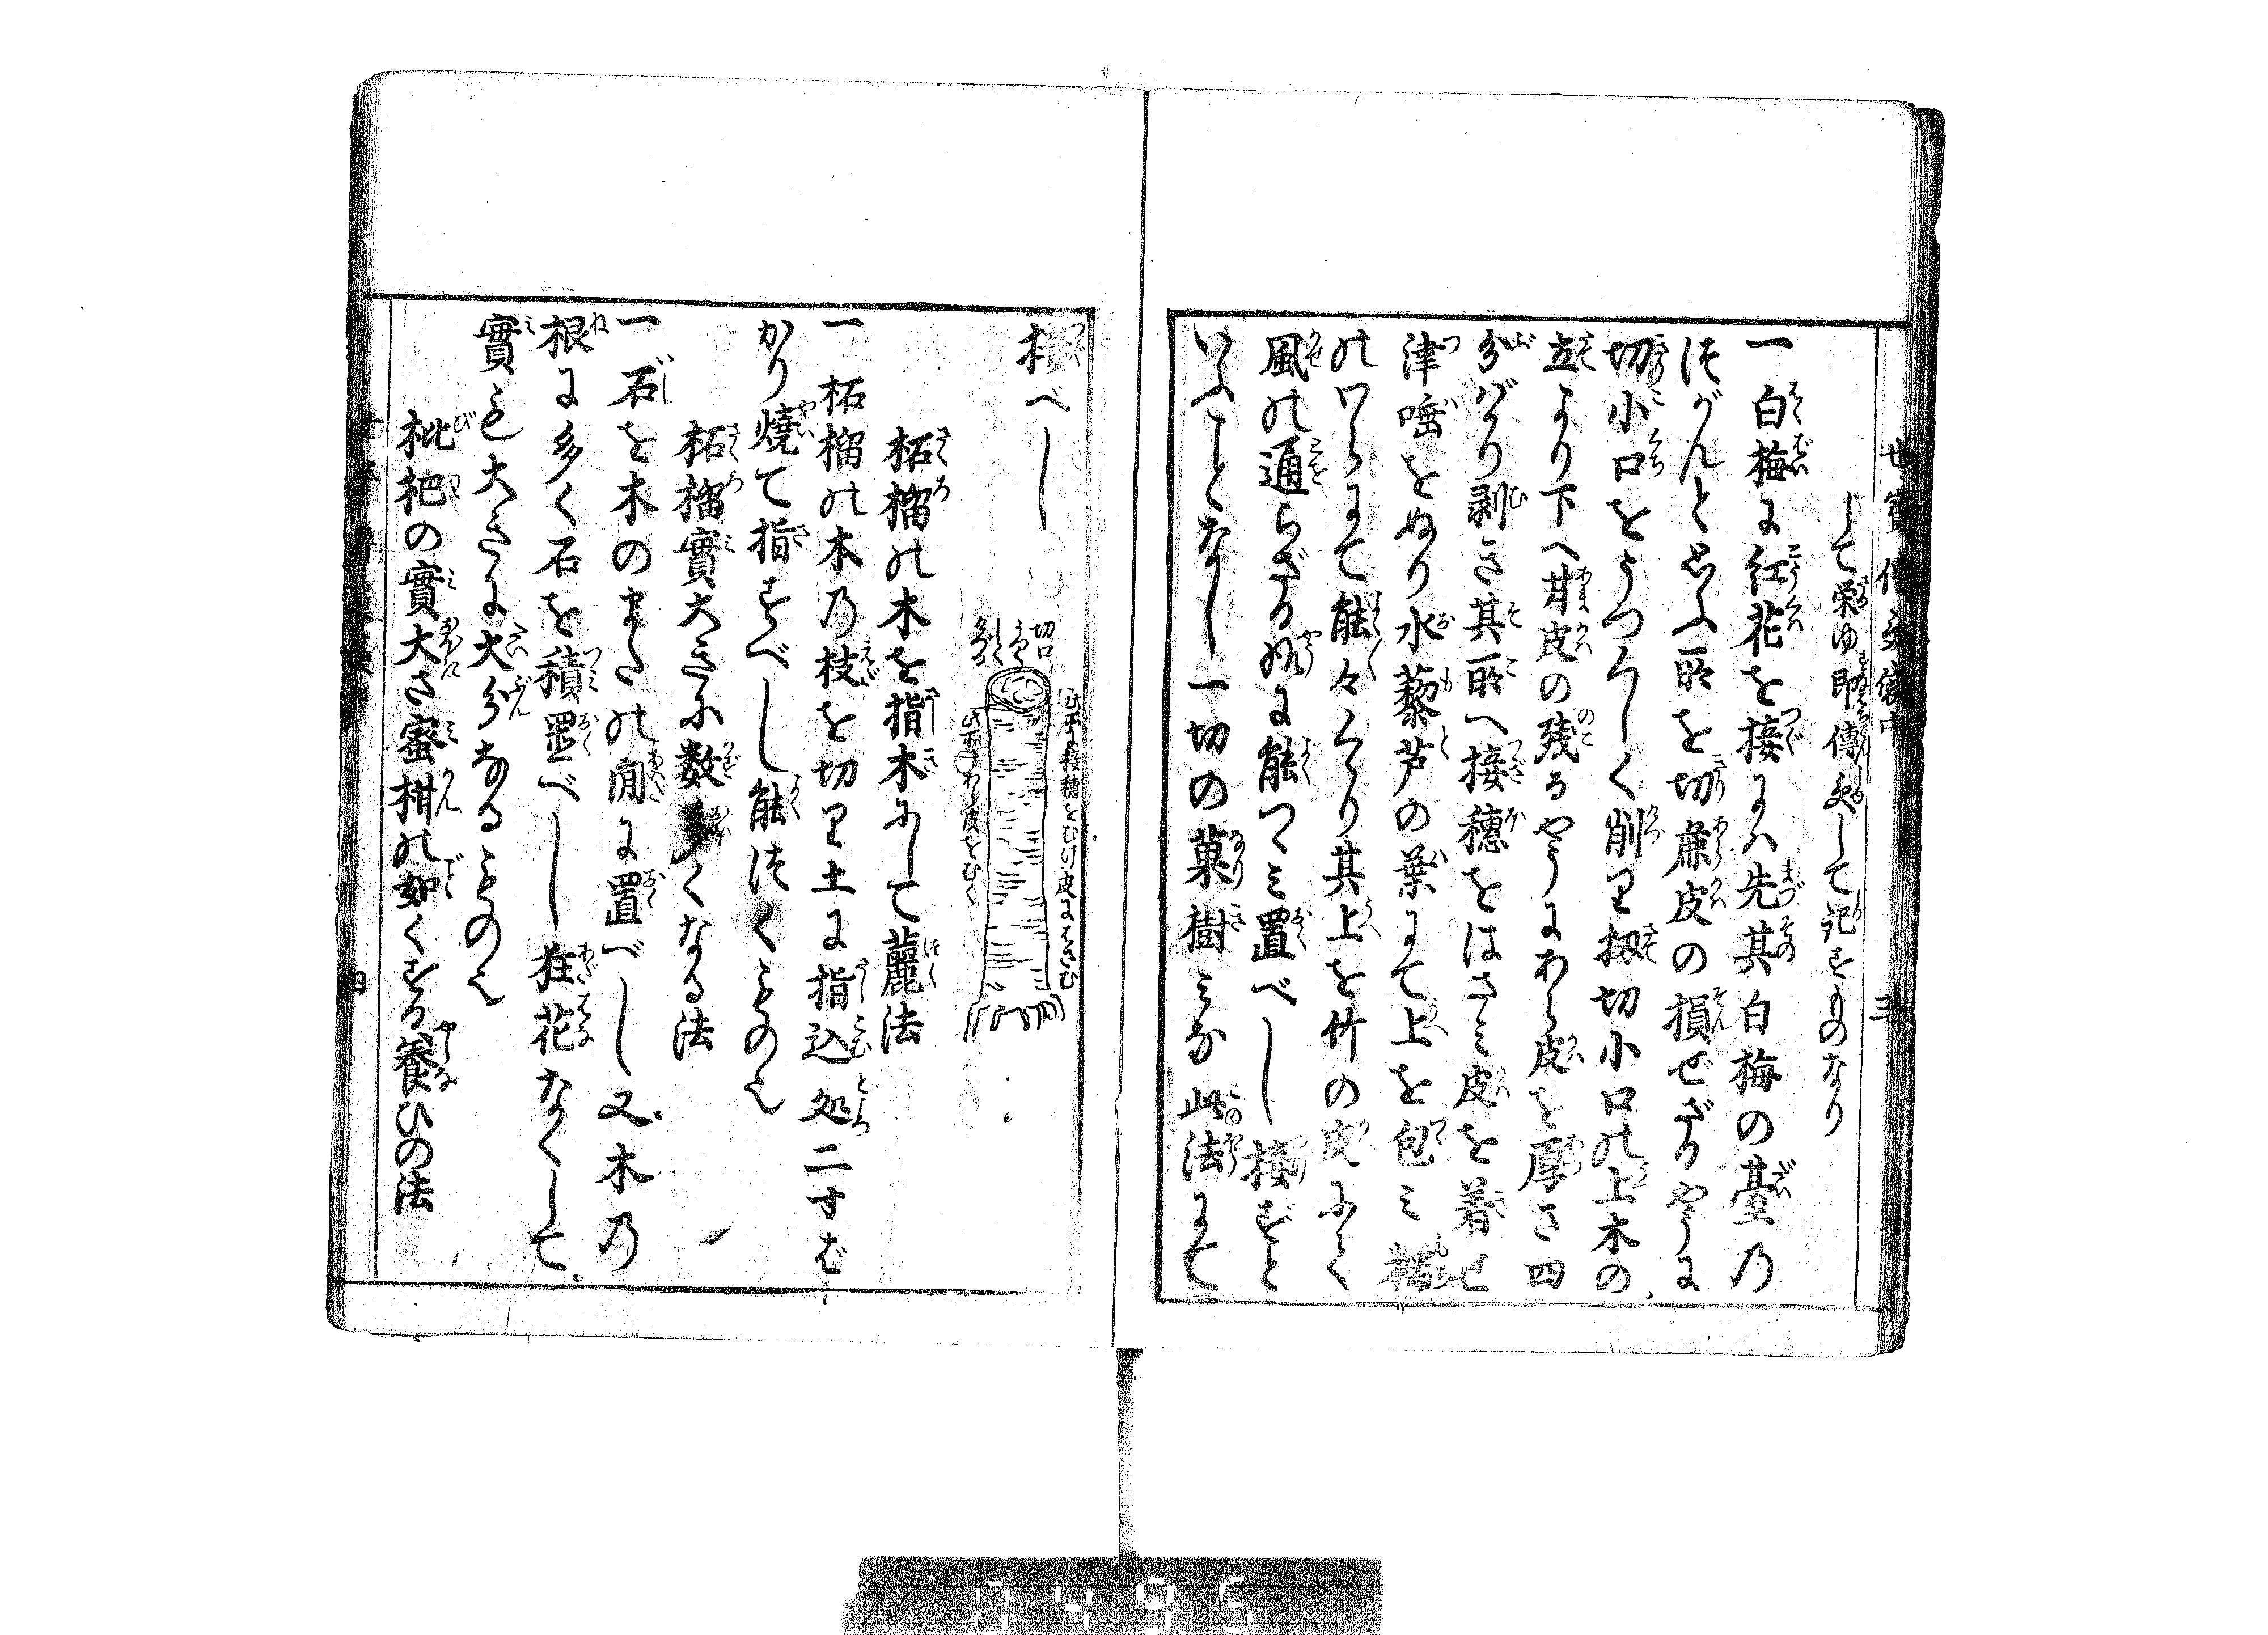 して栄ゆ即傳受して記すものなり
一白梅に紅花を接には先其白梅の臺乃
つがんと思ふ所を切麁皮の損ぜざるやうに
切小口をうつくしく削り扨切小口の上木の
立より下へ甘皮の残るやうにあら皮を厚さ四
分ばかり剥き其所へ接穂をはさみ皮を着せ
津唾をぬり水藜芦の葉にて上を包み
のわらにて能々くくり其上を竹の皮にて
風の通らざる様に能つつみ置べし接ずと
いふことなし一切の菓樹みな此法にて
接べし
切口うつくしくけづる
此所に接穂をむけ皮にはさむ
此所のあら皮をむく
柘榴の木を指木にして麗法
一柘榴の木乃枝を切り土に指込処二寸ば
かり燒て指すべし能つくもの也
柘榴實大きに数多くなる法
一石を木のまたの間に置べし又木乃
根に多く石を積置べし狂花なくして
實も大きに大分なるもの也
枇杷の實大さ蜜柑の如くする養ひの法
三
四
0495